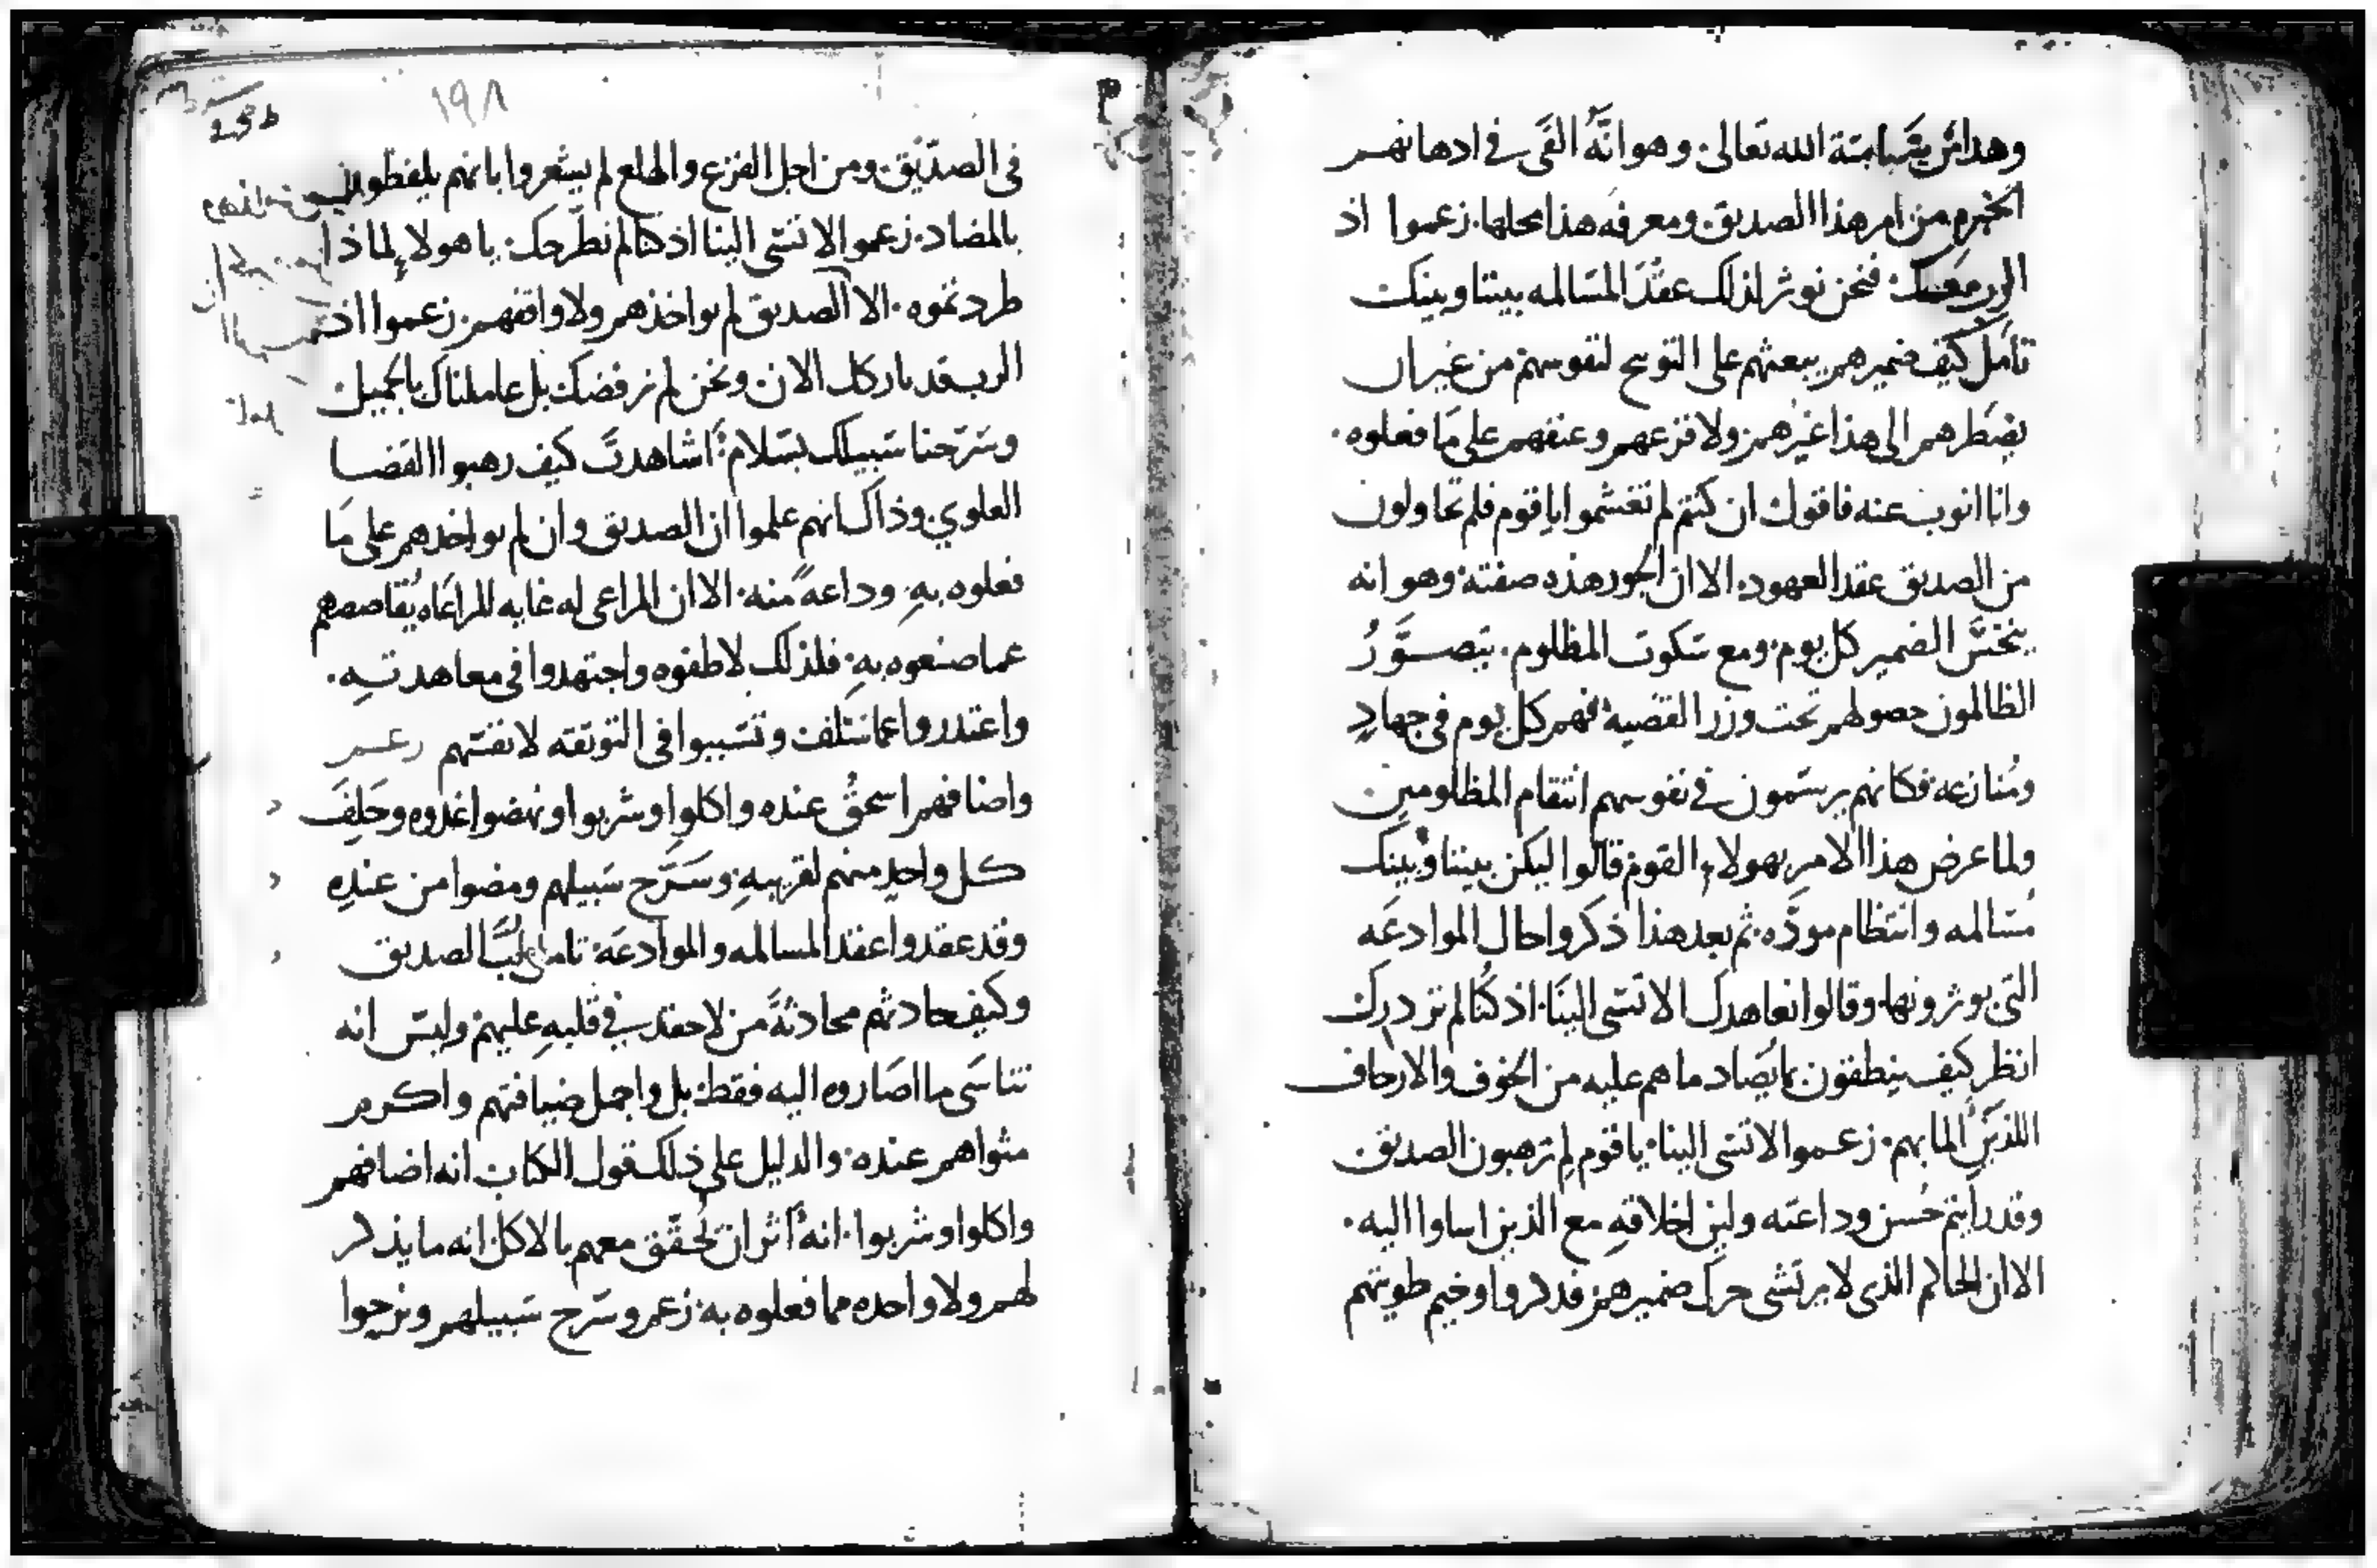 وهذا من سياسة الله تعالى وهو انَّهُ القَى في اذهانهم
الخبرم من امر هذا الصديق ومعرفه هذا محلها. زعموا اذ
الرب معك: فنحن نوثر لذلك عقْدَ المسَالمه بيننا وبينك
تامل كيف ضميرهم يبعثهم على التوبيخ لنفوسهم من غير ان
يضطرهم الى هذا غيرُهم ولا فزعهم وعنفهم على مَا فعلوه.
وانا انوب عنه فاقول ان كنتم لم تغشموا ياقوم فلم تحاولون
من الصديق عقد العهود. الا ان الجور هذه صفته: وهو انه
ينخسَ الضمير كل يوم: ومع سكوت المظلوم. يتصوَّرُ
الظالمون حصولهم تحت وزر القضيه: فهم كل يوم في جهادٍ
ومُنازعه فكانهم يرسمون في نفوسهم انتقام المظلومين
ولما عرض هذا الامر بهولاءِ القوم قالوا ليكن بيننا وبينك
مُسَالمه وانتظام مودَّه. ثم بعد هذا ذكروا حال الموادعَه
التي يوثرونها. وقالوا نعاهدك الا تسَى الينَا. اذ كُنا لم نزدرك
انظر كيف ينطقون بما يُضاد ما هم عليه من الخوف والارجاف
اللذين الما بهم. زعموا الا تسَى الينا: ياقوم لِمَ ترهبون الصديق
وقد رايتم حُسن وداعته ولين اخلاقهِ مع الذين اساوا اليه.
الا ان الحاكم الذي لا يرتشى حرك ضميرهم فذكروا وخيم طويتهم
١٩٨
في الصدّيق. ومن اجل الفزع والهلع لم يشعروا بانهم يلفظون
بالمضاد. زعموا الا تسَى الينا اذ كنا لم نطَّرحك: يا هولاءِ لماذا
طردتموه. الا ان الصديق لم يواخذهم ولا واقفهم. زعموا اذ
الرب قد باركك الان ونحن لم نرفضك بل عاملناك بالجميل
وسَرّحنا سَبيلك بسَلام: اشاهدتَ كيف رهبوا القضا
العلوي وذاك انهم علموا ان الصديق وان لم يواخدهم على مَا
فعلوه بهِ وداعهً منه. الا ان المراعى له غايه المراعَاه يُقاصصهم
عما صنعوه بهِ: فلذلك لاطفوه واجتهدوا في معاهدتهِ.
واعتدروا عما سَلف وتسَببوا في التوثقه لانفسَهم زعم
واضافهم اسحقُ عنده واكلوا وشربوا ونهضوا غدوه وحَلِفَ
كل واحدٍ منهم لقريبهِ: وسَرَّح سَبيلهم ومضوا من عندهِ
وقد عقدوا عقد المسالمه والموادعَه: تامل لُبَّ الصديق
وكيف حادثهم محادثهً من لا حقد في قلبهِ عليهم وليسَ انه
تناسَى ما اصَاروه اليه فقط: بل واجمل ضيافتهم واكرم
مثواهم عنده: والدليل على ذلك قول الكتاب انه اضافهم
واكلوا وشربوا. انهُ اثر ان يُحقّق معهم بالاكل انه ما يذكر
لهم ولا واحده مما فعلوه به: زعم وسَرح سَبيلهم ونزحوا